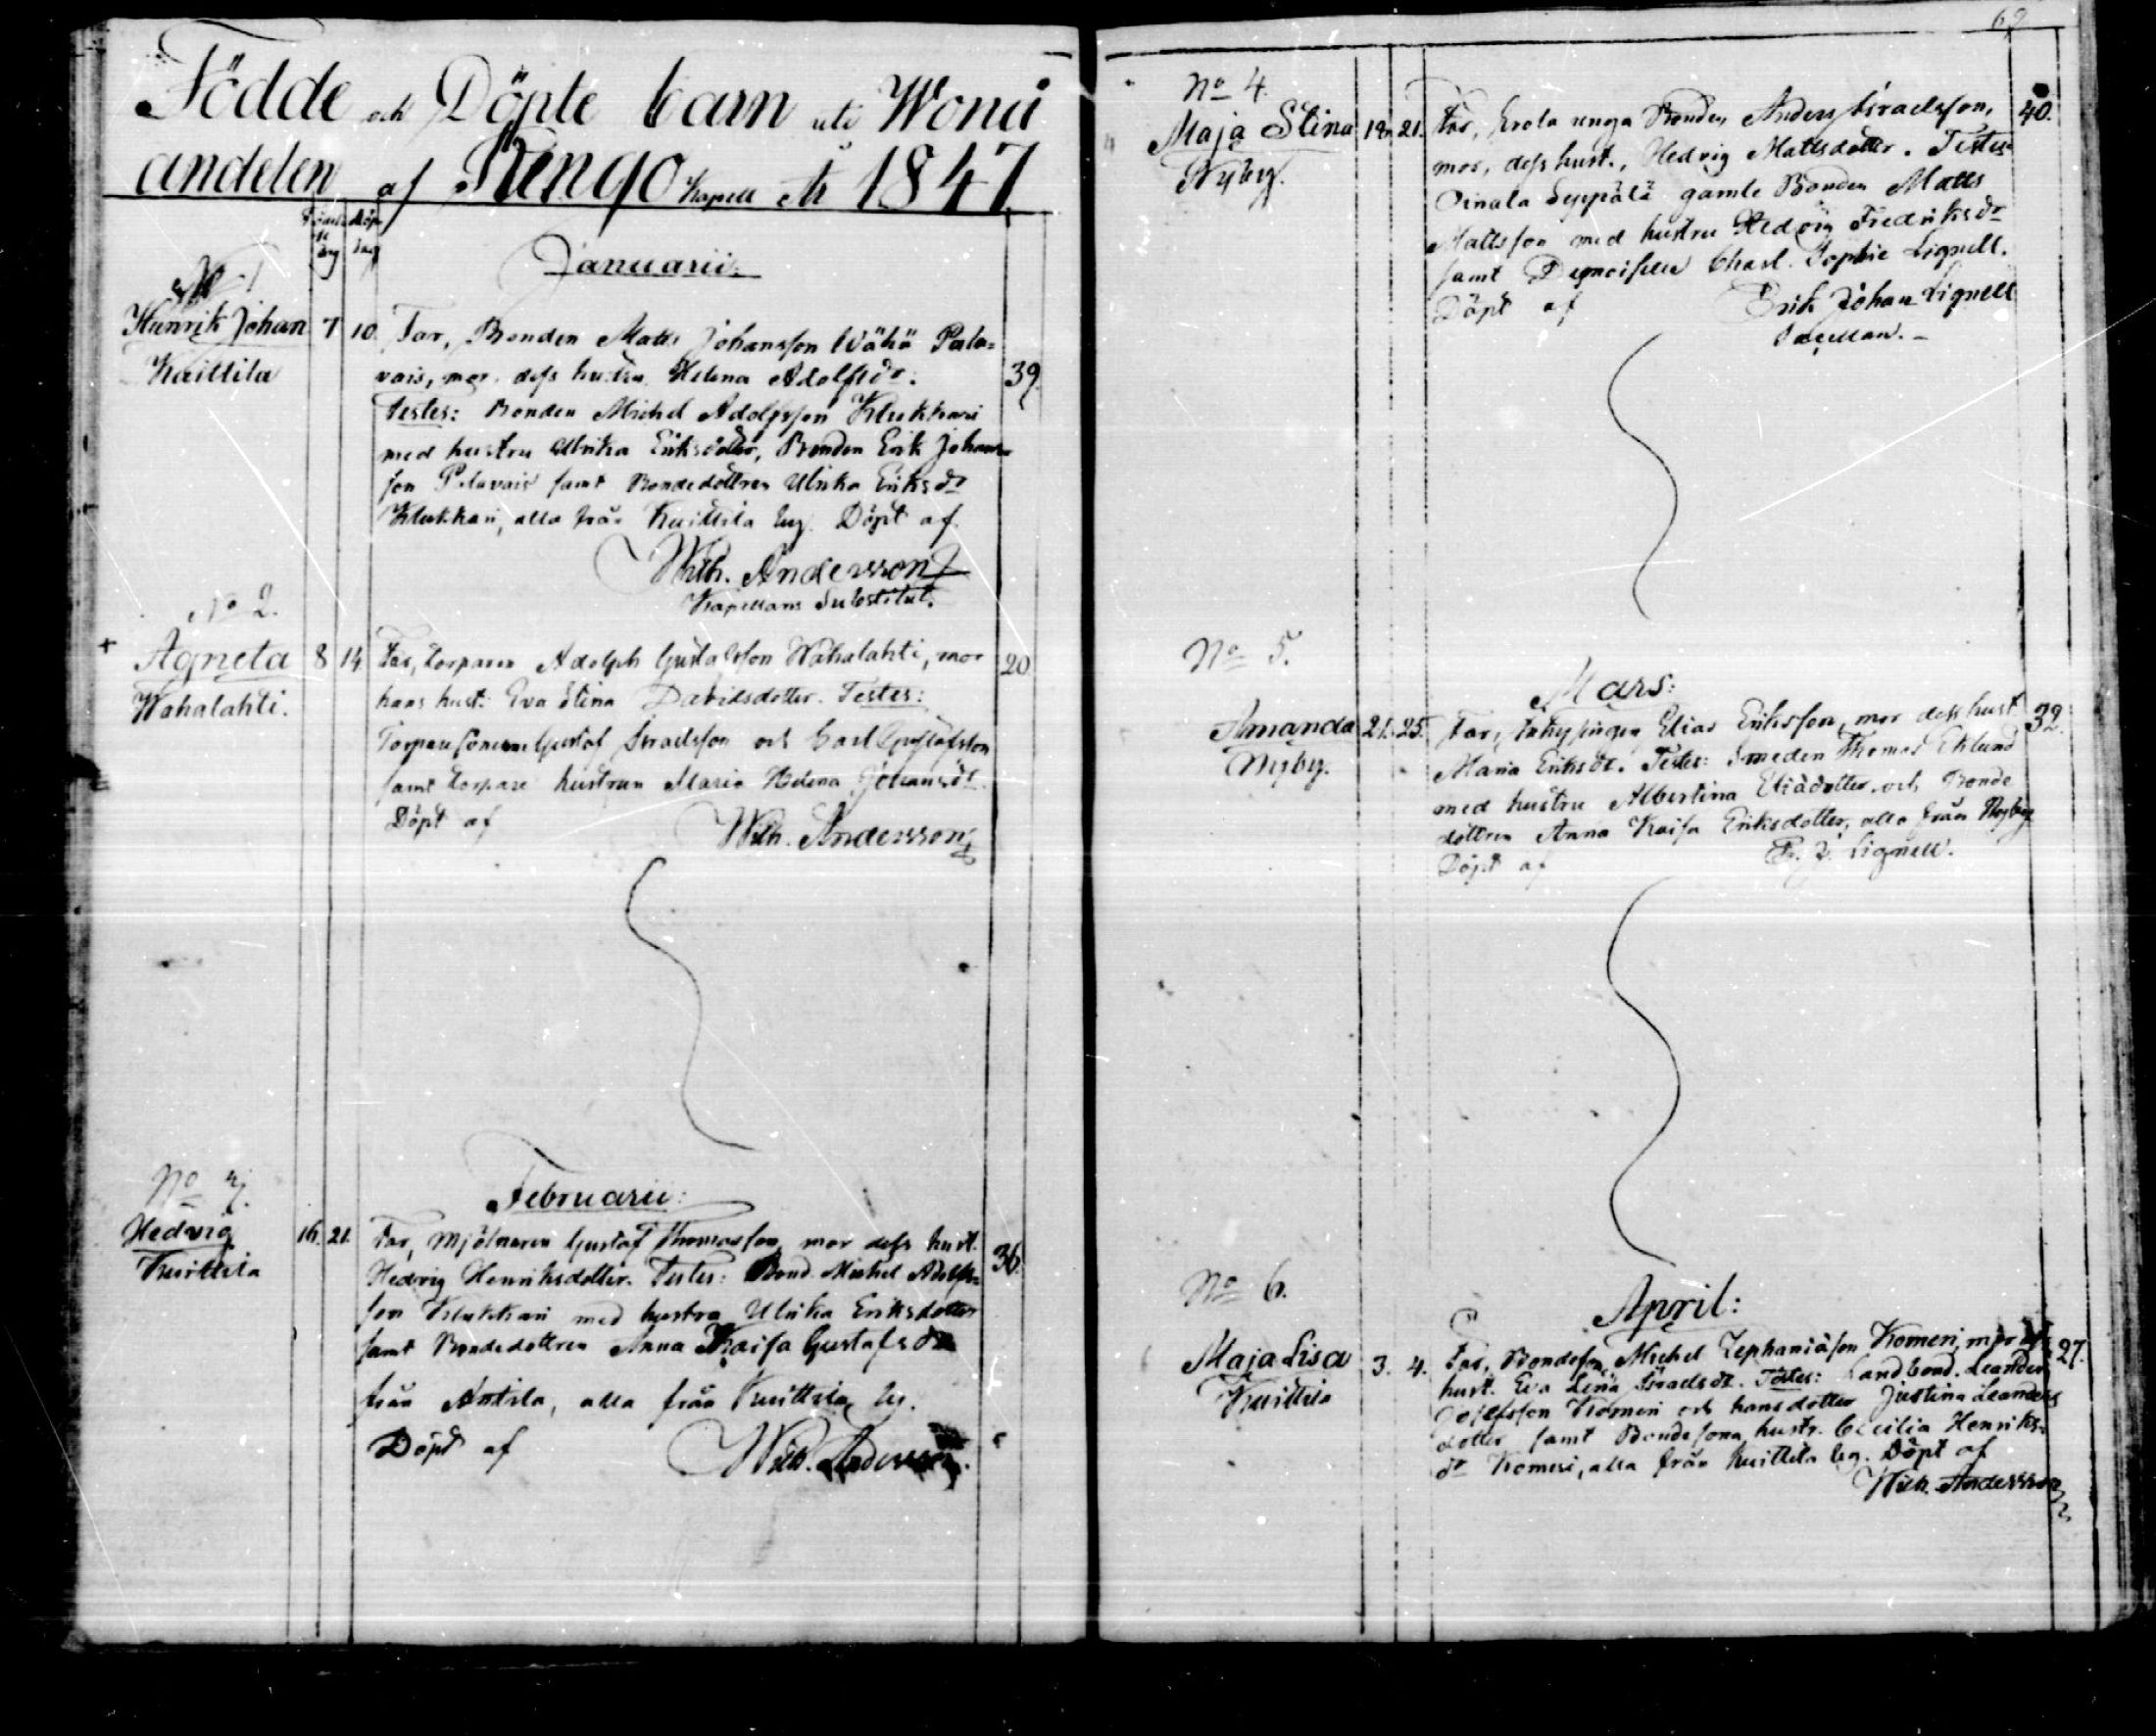 Födde och Döpte barn uti Wonå
andelen af Rengo Kapell År 1847
Födelse dag Döpe dag
Januarii:
No 1
Henrik Johan 7 10. Far, Bonden Matts Johansson Wähä Pala=
Kuittila vais, mor dess hustru Helena Adolfsdr. 39.
Testes: Bonden Michel Adolfsson Klukkari
med hustru Ulrika Eriksdotter, Bonden Erik Johans=
son Palavais samt Bondedottren Ulrika Eriksdr
Klukkari, alla från Kuittila by. Döpt af
Wilh. Andersson
Kapellans Substitut.
No 2.
+ Agneta 8 14 Far, torparen Adolph Gustafsson Wahalahti, mor 20
Wahalahti. hans hust. Eva Stina Davidsdotter. Testes:
Torparesönerne Gustaf Israelsson och Carl Gustafsson
samt torpare hustrun Maria Helena Johansdr.
Döpt af Wilh. Andersson
No 3.
Februarii:
Hedvig 16. 21. Far, Mjölnaren Gustaf Thomasson, mor dess hust. 36.
Kuittila Hedvig Henriksdotter. Testes: Bond. Michel Adolfs=
son Klukkari med hustru Ulrika Eriksdotter
samt Bondedottren Anna Kaisa Gustafsdr
från Anttila, alla från Kuittila by.
Döpt af Wilh. Andersson.
69
No 4.
Maja Stina 18 21. Far, Erola unga Bonden Anders Israelsson, 40.
Nyby. mor, dess hust., Hedvig Mattsdotter. Testes
Oinala Seppälä gamle Bonden Matts
Mattsson med hustru Hedvig Fredriksdr
samt Demoiselle Charl. Sophie Lignell.
Döpt af Erik Johan Lignell
Sacellan.
No 5.
Mars:
Amanda 21. 25. Far, Inhysingen Elias Eriksson, mor dess hust. 32.
Nyby. Maria Eriksdr. Testes: Smeden Thomas Eklund
med hustru Albertina Eliædotter, och Bonde
dottren Anna Kaisa Eriksdotter, alla från Nyby
Döpt af E. J. Lignell.
No 6.
April:
Maja Lisa 3. 4. Far, Bondeson Michel Zephaniæson Komeri, mor dess 27.
Kuittila hust. Eva Lena Israelsdr. Testes: Landbond. Leander
Josefsson Komeri och hans dotter Justina Leanders
dotter samt Bondesons hustr. Cecilia Henriks=
dr Komeri, alla från Kuittila by. Döpt af
Wilh. Andersson